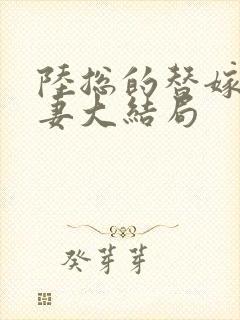 陸總的替嫁
妻大結局
癸芽芽